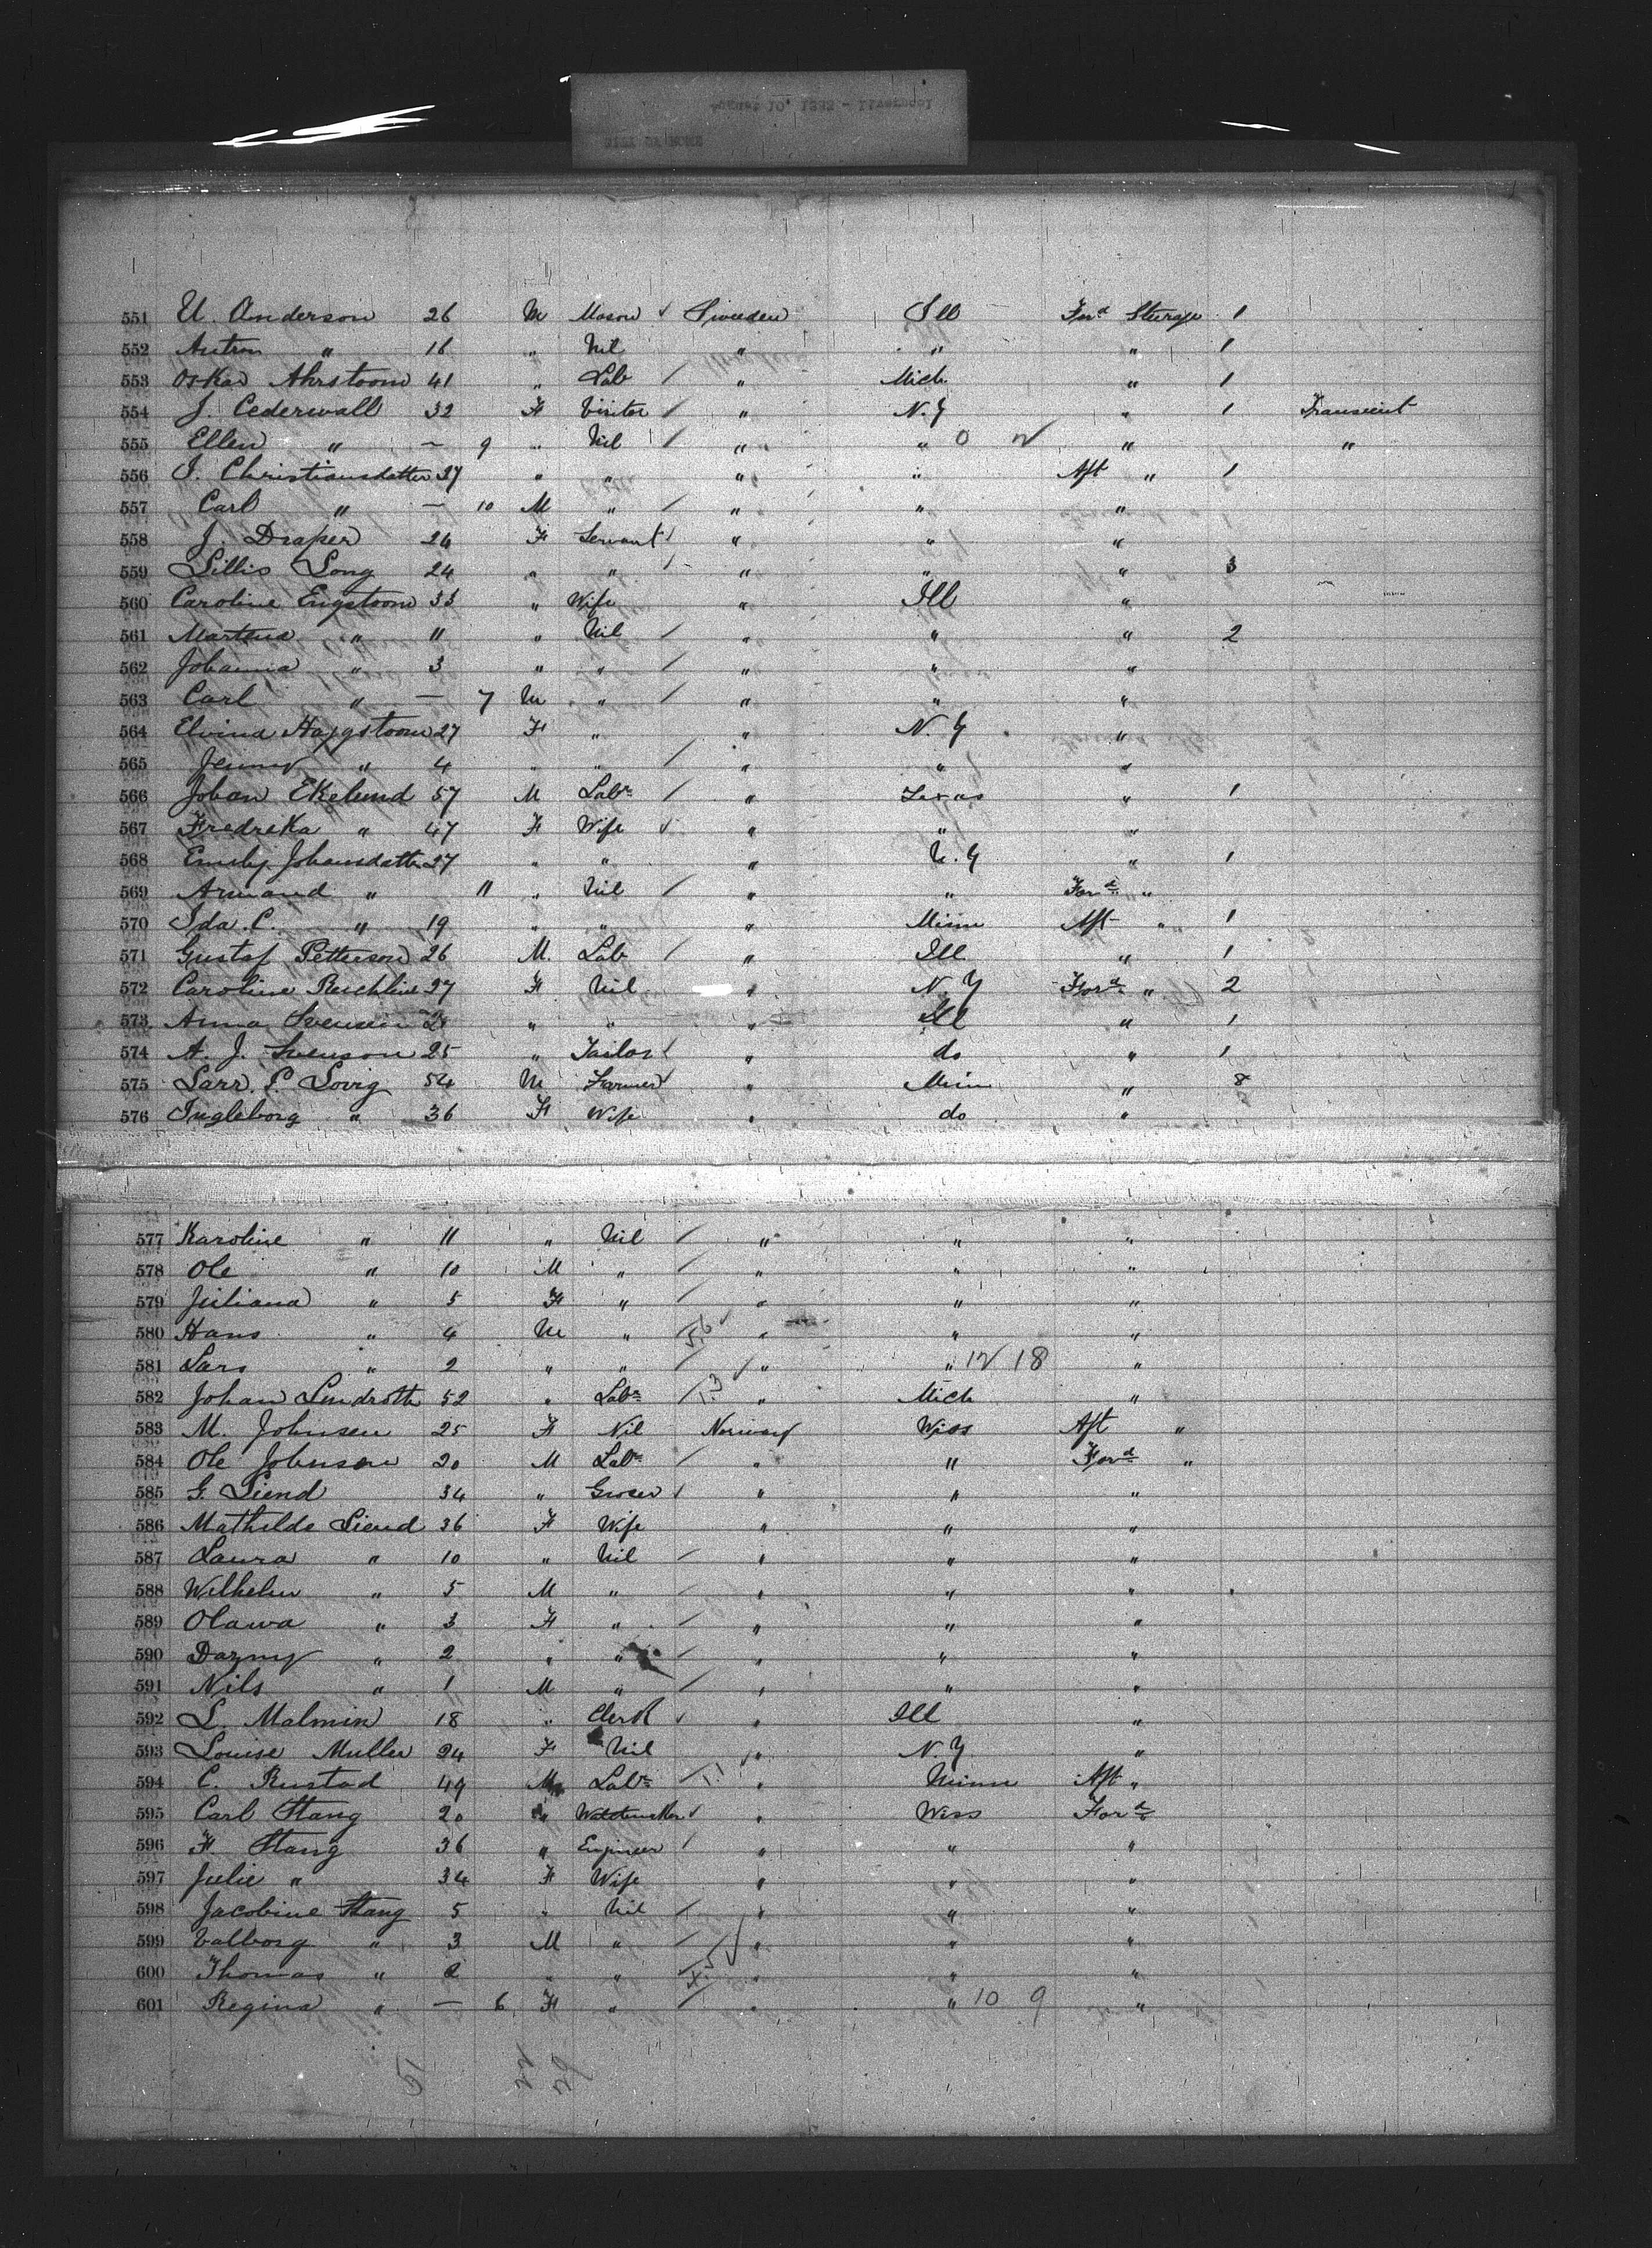 551 U. Anderson 26 M Mason Sweeden Ill For'd Sturage 1
552 Antron " 16 " Nil " " " 1
553 Oskar Ahrstoom 41 " Lab / " Mich " 1
554 J. Cederwall 32 F Visitor / " N.Y " 1 Transient
555 Ellen " — 9 " Nil / " " 0 " "
556 I. Christiansdatter 27 " " " " Aft " 1
557 Carl " — 10 M " / " " "
558 J. Draper 24 F Servant / " " "
559 Lillis Long 24 " " / " " " 3
560 Caroline Engstoom 33 " Wife " Ill "
561 Martena " 11 " Nil / " " " 2
562 Johanna " 3 " " / " " "
563 Carl " — 7 M " / " " "
564 Elvina Haggstoom 27 F " " N.Y "
565 Jenny " 4 " " / " " "
566 Johan Ekelund 57 M Labr / " Texas " 1
567 Fredreka " 47 F Wife " " "
568 Emily Johansdatter 27 " " " N.Y " 1
569 Armand " 11 " Nil / " " For'd "
570 Ida. C. " 19 " " " Minn Aft " 1
571 Gustaf Petterson 26 M. Lab / " Ill " 1
572 Caroline 27 F Nil " N.Y For'd " 2
573 Anna Svensen " " " Ill " 1
574 A. J. Svenson 25 " Tailor " do " 1
575 Larr. P. Lovig 54 M Farmer " Minn " 8
576 Ingleborg " 36 F Wife " do "
577 Karoline " 11 " Nil / " " "
578 Ole " 10 M " / " " "
579 Juliana " 5 F " / " " "
580 Hans " 4 M " 5.6 " " "
581 Lars " 2 " " / " " 12 18 "
582 Johan Lindroth 52 " Labr 1.3 " Mich "
583 M. Johnsen 25 F Nil Norway Wiss Aft "
584 Ole Johnson 20 M Labr / " " For'd "
585 G. Siend 34 " Grocer " " "
586 Mathilde Siend 36 F Wife " " "
587 Laura " 10 " Nil / " " "
588 Wilhelm " 5 M " / " " "
589 Olawa " 3 F " / " " "
590 Dazny " 2 " " / " " "
591 Nils " 1 M " / " " "
592 L. Malmin 18 " Clerk " Ill "
593 Louise Muller 24 F Nil " N.Y. "
594 C. Rustad 49 M Labr 1.1 " Minn Aft "
595 Carl Stang 20 " Watchmaker " Wiss For'd
596 F. Stang 36 " Engineer / " " "
597 Julie " 34 F Wife " " "
598 Jacobine Stang 5 " Nil / " " "
599 Valborg " 3 M " / " " "
600 Thomas " 2 " " " " "
601 Regina " — 6 F " / " " 10 9 "